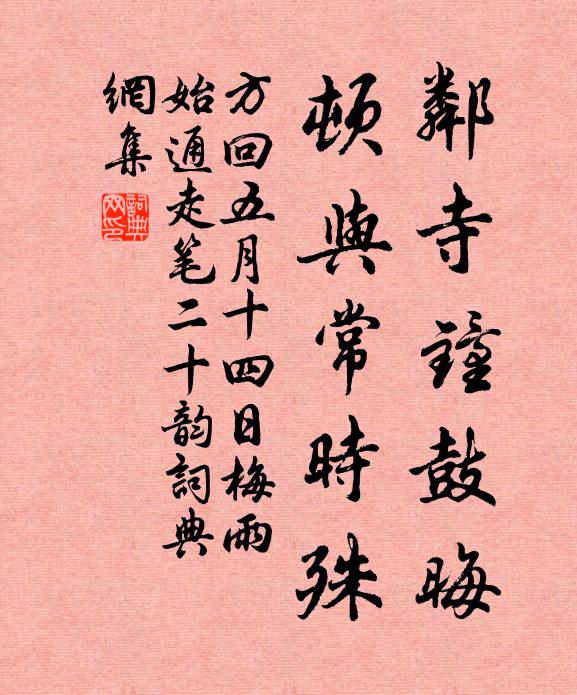 鄰寺鐘鼓晦
頓與常時殊
方回五月十四日梅雨
始通走笔二十韵詞典
網集
詞典網印